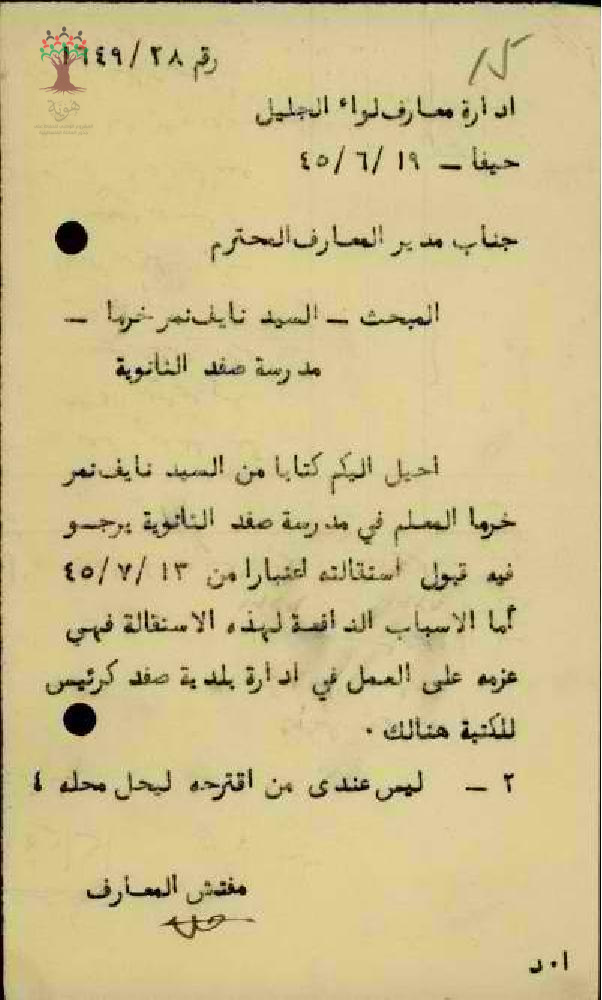 رقم ١٦٤٩/٢٨
١٥
ادارة معارف لواء الجليل
حيفا – ١٩ /٦ /٤٥
جناب مدير المعارف المحترم
المبحث – السيد نايف نمر خرما –
مدرسة صفد الثانوية
احيل اليكم كتابا من السيد نايف نمر
خرما المعلم في مدرسة صفد الثانوية يرجو
فيه قبول استقالته اعتبارا من ١٣ /٧ /٤٥
أما الاسباب الدافعة لهذه الاستقالة فهي
عزمه على العمل في ادارة بلدية صفد كرئيس
للكتبة هنالك ٠
٢ – ليس عندى من اقترحه ليحل محله ٤
مفتش المعارف
ا٠د
هوية